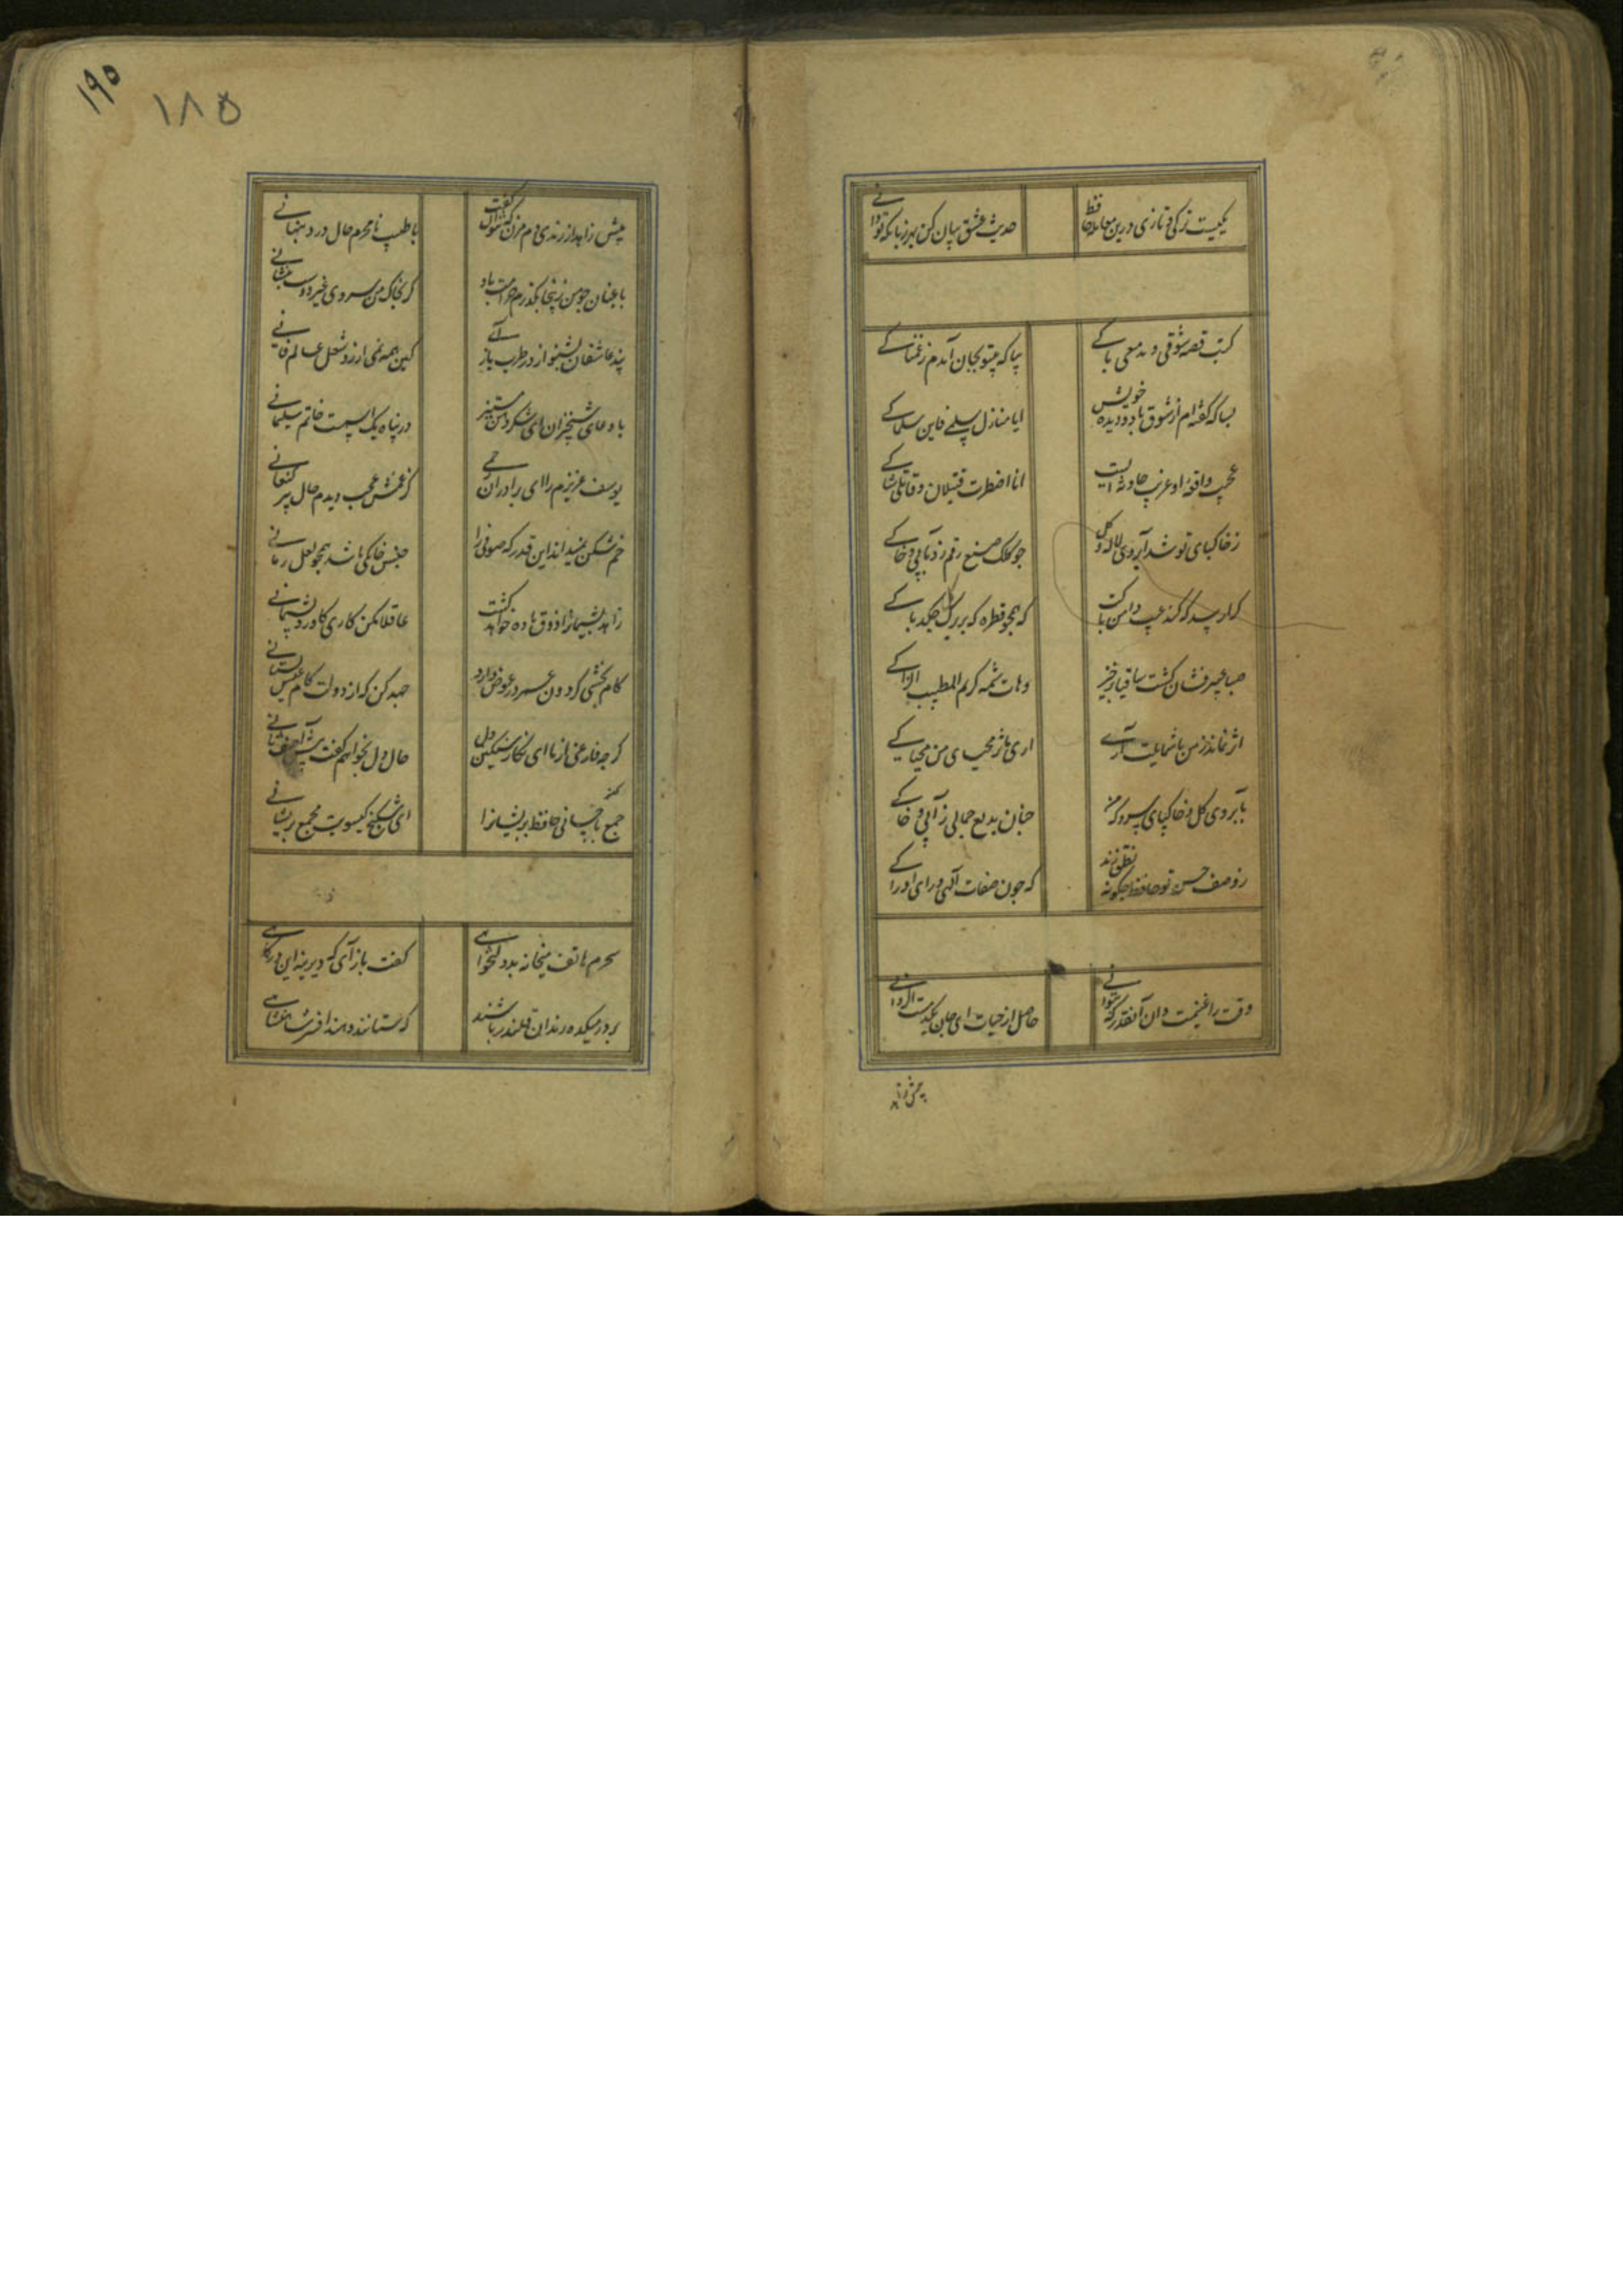 یکیست ترکی و تازی درین معامله حافظ
حدیث عشق بیان کن بهر زبان که تو دانی
کتبت قصه شوقی و مدمعی باکی
بیا که بیتو بجان آمدم ز غمناکی
بسا که گفته‌ام از شوق با دو دیده خویش
ایا منازل سلمی فاین سلماکی
عجیب واقعه و غریب حادثه ایست
انا اضطرت قتیلان و قاتلی شاکی
ز خاکپای تو شد آبروی لاله و گل
چو کلک صنع رقم زد بآبی و خاکی
کرا رسد که کند عیب دامن پاکت
که همچو قطره که بر برگ گل چکد پاکی
صبا عبیر فشان گشت ساقیا برخیز
و هات شمسة کرم المطیب الزاکی
اثر نماند ز من با شمایلت آری
اری مآثر محیای من محیاکی
بآبروی گل و خاکپای سرو که من
چنان بدیع جمالی ز آبی و خاکی
ز وصف حسن تو حافظ چگونه نطق زند
که چون صفات الهی ورای ادراکی
وقت را غنیمت دان آنقدر که بتوانی
حاصل از حیات ای جان یکدمست تا دانی
پیش زا
۱۹۵
۱۸۵
پیش زاهد از رندی دم مزن که نتوان گفت
با طبیب نامحرم حال درد پنهانی
باغبان چو من زینجا بگذرم حرامت باد
گر بجای من سروی غیر دوست بنشانی
پند عاشقان بشنو از در طرب باز آی
کین همه نمی‌ارزد شغل عالم فانی
با دعای شبخیزان ای شکر دهن مستیز
در پناه یک اسمست خاتم سلیمانی
یوسف عزیزم را ای برادران رحمی
کز غمش عجب دیدم حال پیر کنعانی
خم شکن نمیداند این قدر که صوفی را
جنس خانگی باشد همچو لعل رمانی
زاهد پشیمان را ذوق باده خواهد کشت
عاقلا مکن کاری کاورد پشیمانی
کام بخشی گردون عمر در عوض دارد
جهد کن که از دولت کام عیش بستانی
گر چه فارغی از ما ای نگار سنگین دل
حال دل بخواهم گفت پیش آصف ثانی
جمع کن باحسانی حافظ پریشان را
ای شکنج گیسویت مجمع پریشانی
سحرم هاتف میخانه بدولتخواهی
گفت باز آی که دیرینه این درگاهی
بر در میکده رندان قلندر باشند
که ستانند و دهند افسر شاهنشاهی